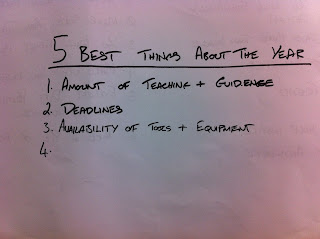 5 BEST THINGS ABOUT THE YEAR
1. AMOUNT OF TEACHING + GUIDENCE
2. DEADLINES
3. AVAILABILITY OF TOOLS + EQUIPMENT
4.